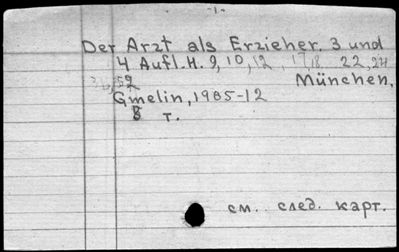 -1-
Der Arzt als Erzieher. 3 und
4 Aufl. H. 9, 10, 12, 17, 18 22, 24
, 52 München,
Gmelin, 1905-12
8 т.
см. след. карт.